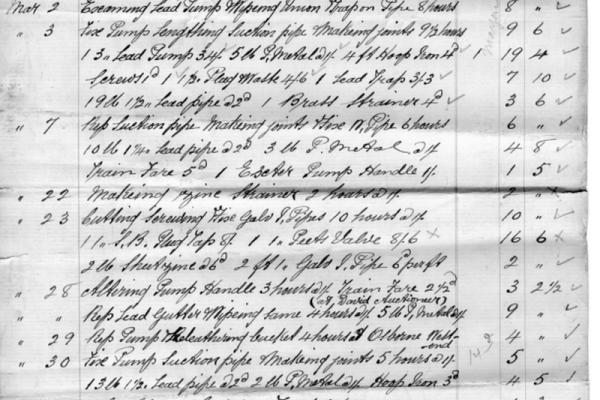 Mar 2 Examining Lead Pump Wipeing Union Trap on Pipe 8 hours 8 "
" 3 Fixe Pump Lengthing Suction pipe Makeing joints 9½ hours 9 6
1 3" Lead Pump 34/- 5 lb P. Metal d/- 4 ft Hoop Iron 4d 1 19 4
Screws 1d 1 1½ Plug Waste 4/6 1 Lead Trap 3/3 7 10
19 lb 1½" Lead pipe d 2d 1 Brass Strainer 4d 3 6
" 7 Rep Suction pipe Makeing joints Fixe W. Pipe 6 hours 6 "
10 lb 1¼ Lead pipe d 2d 3 lb P. Metal d/- 4 8
Train Fare 5d 1 Exeter Pump Handle 1/- 1 5
" 22 Makeing zinc Strainer 2 hours d/- 2 "
" 23 Cutting Screwing Fixe Galv I. Pipes 10 hours d/- 10 "
1 1" S.B. Plug Tap 8/- 1 1" Peets Valve 8/6 16 6
2 lb Sheet zinc d 6d 2 ft 1" Galv I. Pipe 6d per ft 2 "
" 28 Altering Pump Handle 3 hours d/- Train Fare 2½d 3 2½
(at David Auctioner)
" " Rep Lead Gutter Wipeing same 4 hours d/- 5 lb P. Metal d/- 9 "
" 29 Rep Pump Releathering bucket 4 hours Osborne West-end 4 "
" 30 Fixe Pump Suction pipe Makeing joints 5 hours d/- 5 "
13 lb 1½ Lead pipe d 2d 2 lb P. Metal d/- Hoop Iron 3d 4 5